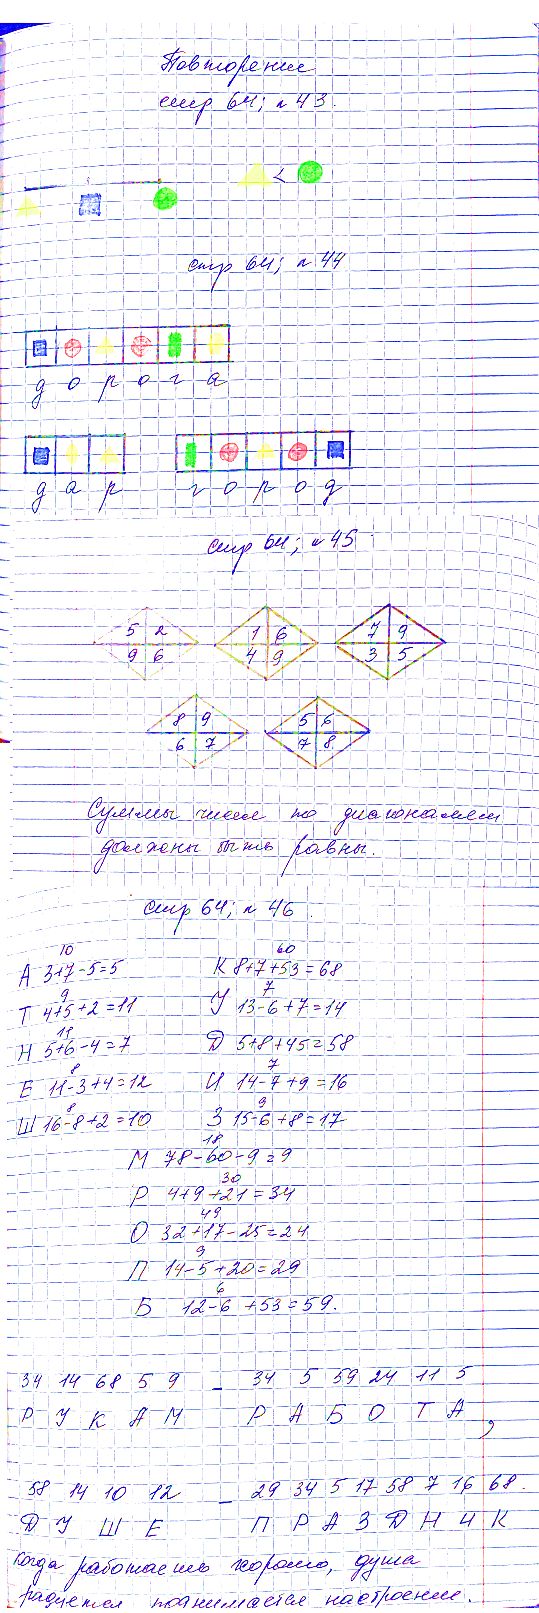 Повторение
стр 64; № 43.
<
стр 64; № 44
д о р о г а
д а р г о р о д
стр 64; № 45
5 2 1 6 7 9
9 6 4 9 3 5
8 9 5 6
6 7 7 8
Суммы чисел по диагоналям
должны быть равны.
стр 64; № 46.
10 60
А 3+7-5=5 К 8+7+53=68
9 7
Т 4+5+2=11 У 13-6+7=14
11
Н 5+6-4=7 Д 5+8+45=58
8 7
Е 11-3+4=12 И 14-7+9=16
8 9
Ш 16-8+2=10 З 15-6+8=17
18
М 78-60-9=9
30
Р 4+9+21=34
49
О 32+17-25=24
9
П 14-5+20=29
6
Б 12-6+53=59.
34 14 68 5 9 – 34 5 59 24 11 5
Р У К А М Р А Б О Т А ,
58 14 10 12 – 29 34 5 17 58 7 16 68.
Д У Ш Е П Р А З Д Н И К
Когда работаешь хорошо, душа
радуется поднимается настроение.